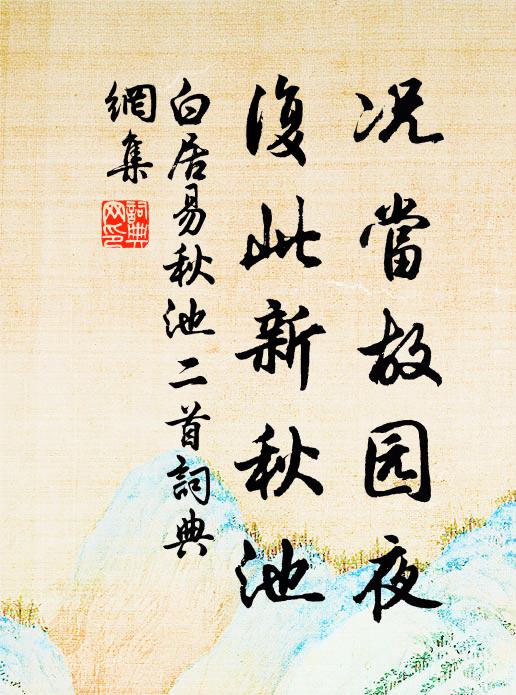 况當故园夜
復此新秋池
白居易秋池二首詞典
網集
詞典
网印